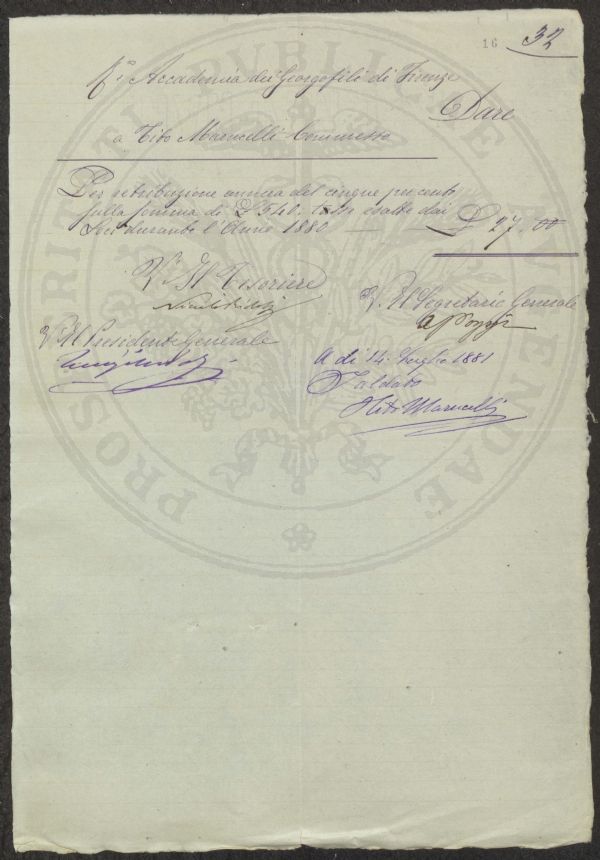 16 32
R.a Accademia dei Georgofili di Firenze
Dare
a Tito Marucelli Commesso
Per retribuzione annua del cinque per cento
sulla somma di £ 540. tasse esatte dai
Soci durante l'Anno 1880 — — £ 27.00
V.o Il Tesoriere
V. Il Segretario Generale
V.o Il Presidente Generale
A dì 14. Luglio 1881
Saldato
Tito Marucelli
PROSPERITATI PUBLICAE AUGENDAE